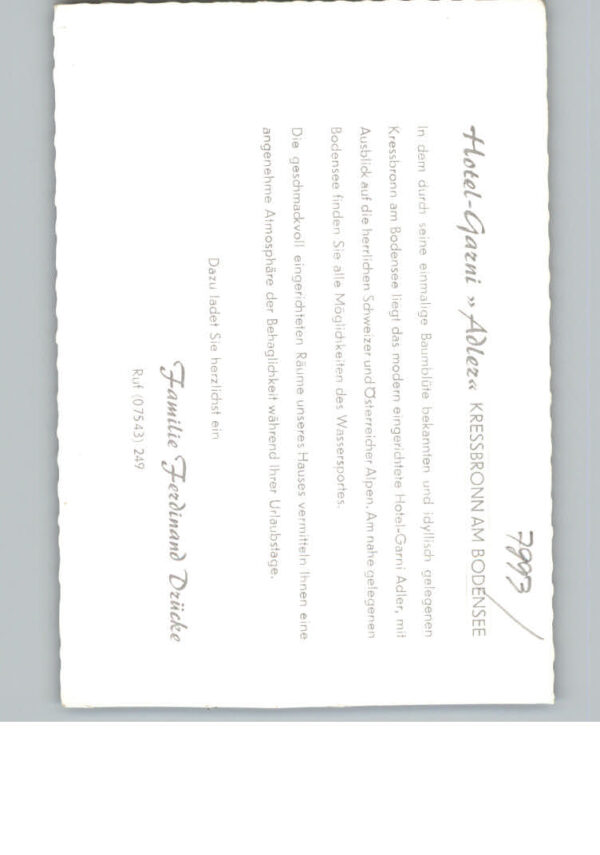 7993/
Hotel-Garni »Adler« KRESSBRONN AM BODENSEE
In dem durch seine einmalige Baumblüte bekannten und idyllisch gelegenen
Kressbronn am Bodensee liegt das modern eingerichtete Hotel-Garni Adler, mit
Ausblick auf die herrlichen Schweizer und Österreicher Alpen. Am nahe gelegenen
Bodensee finden Sie alle Möglichkeiten des Wassersportes.
Die geschmackvoll eingerichteten Räume unseres Hauses vermitteln Ihnen eine
angenehme Atmosphäre der Behaglichkeit während Ihrer Urlaubstage.
Dazu ladet Sie herzlichst ein
Familie Ferdinand Drücke
Ruf (07543) 249